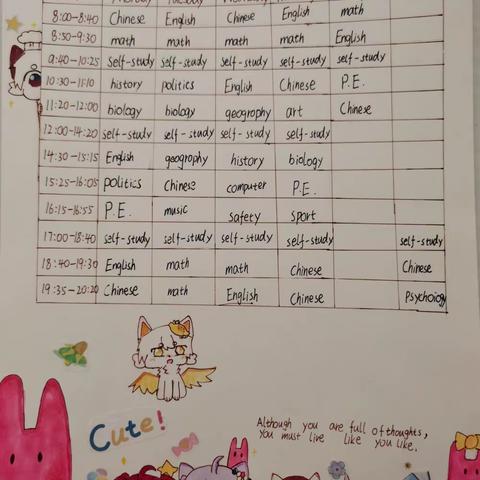 8:00-8:40 Chinese English Chinese English math
8:50-9:30 math math math math English
9:40-10:25 self-study self-study self-study self-study self-study
10:30-11:10 history politics English Chinese P.E.
11:20-12:00 biology biology geography art Chinese
12:00-14:20 self-study self-study self-study self-study
14:30-15:15 English geography history biology
15:25-16:05 politics Chinese computer P.E.
16:15-16:55 P.E. music safety sport
17:00-18:40 self-study self-study self-study self-study self-study
18:40-19:30 English math math Chinese Chinese
19:35-20:20 Chinese math English Chinese Psychoiogy
Cute!
Although you are full of thoughts,
You must live like you like.